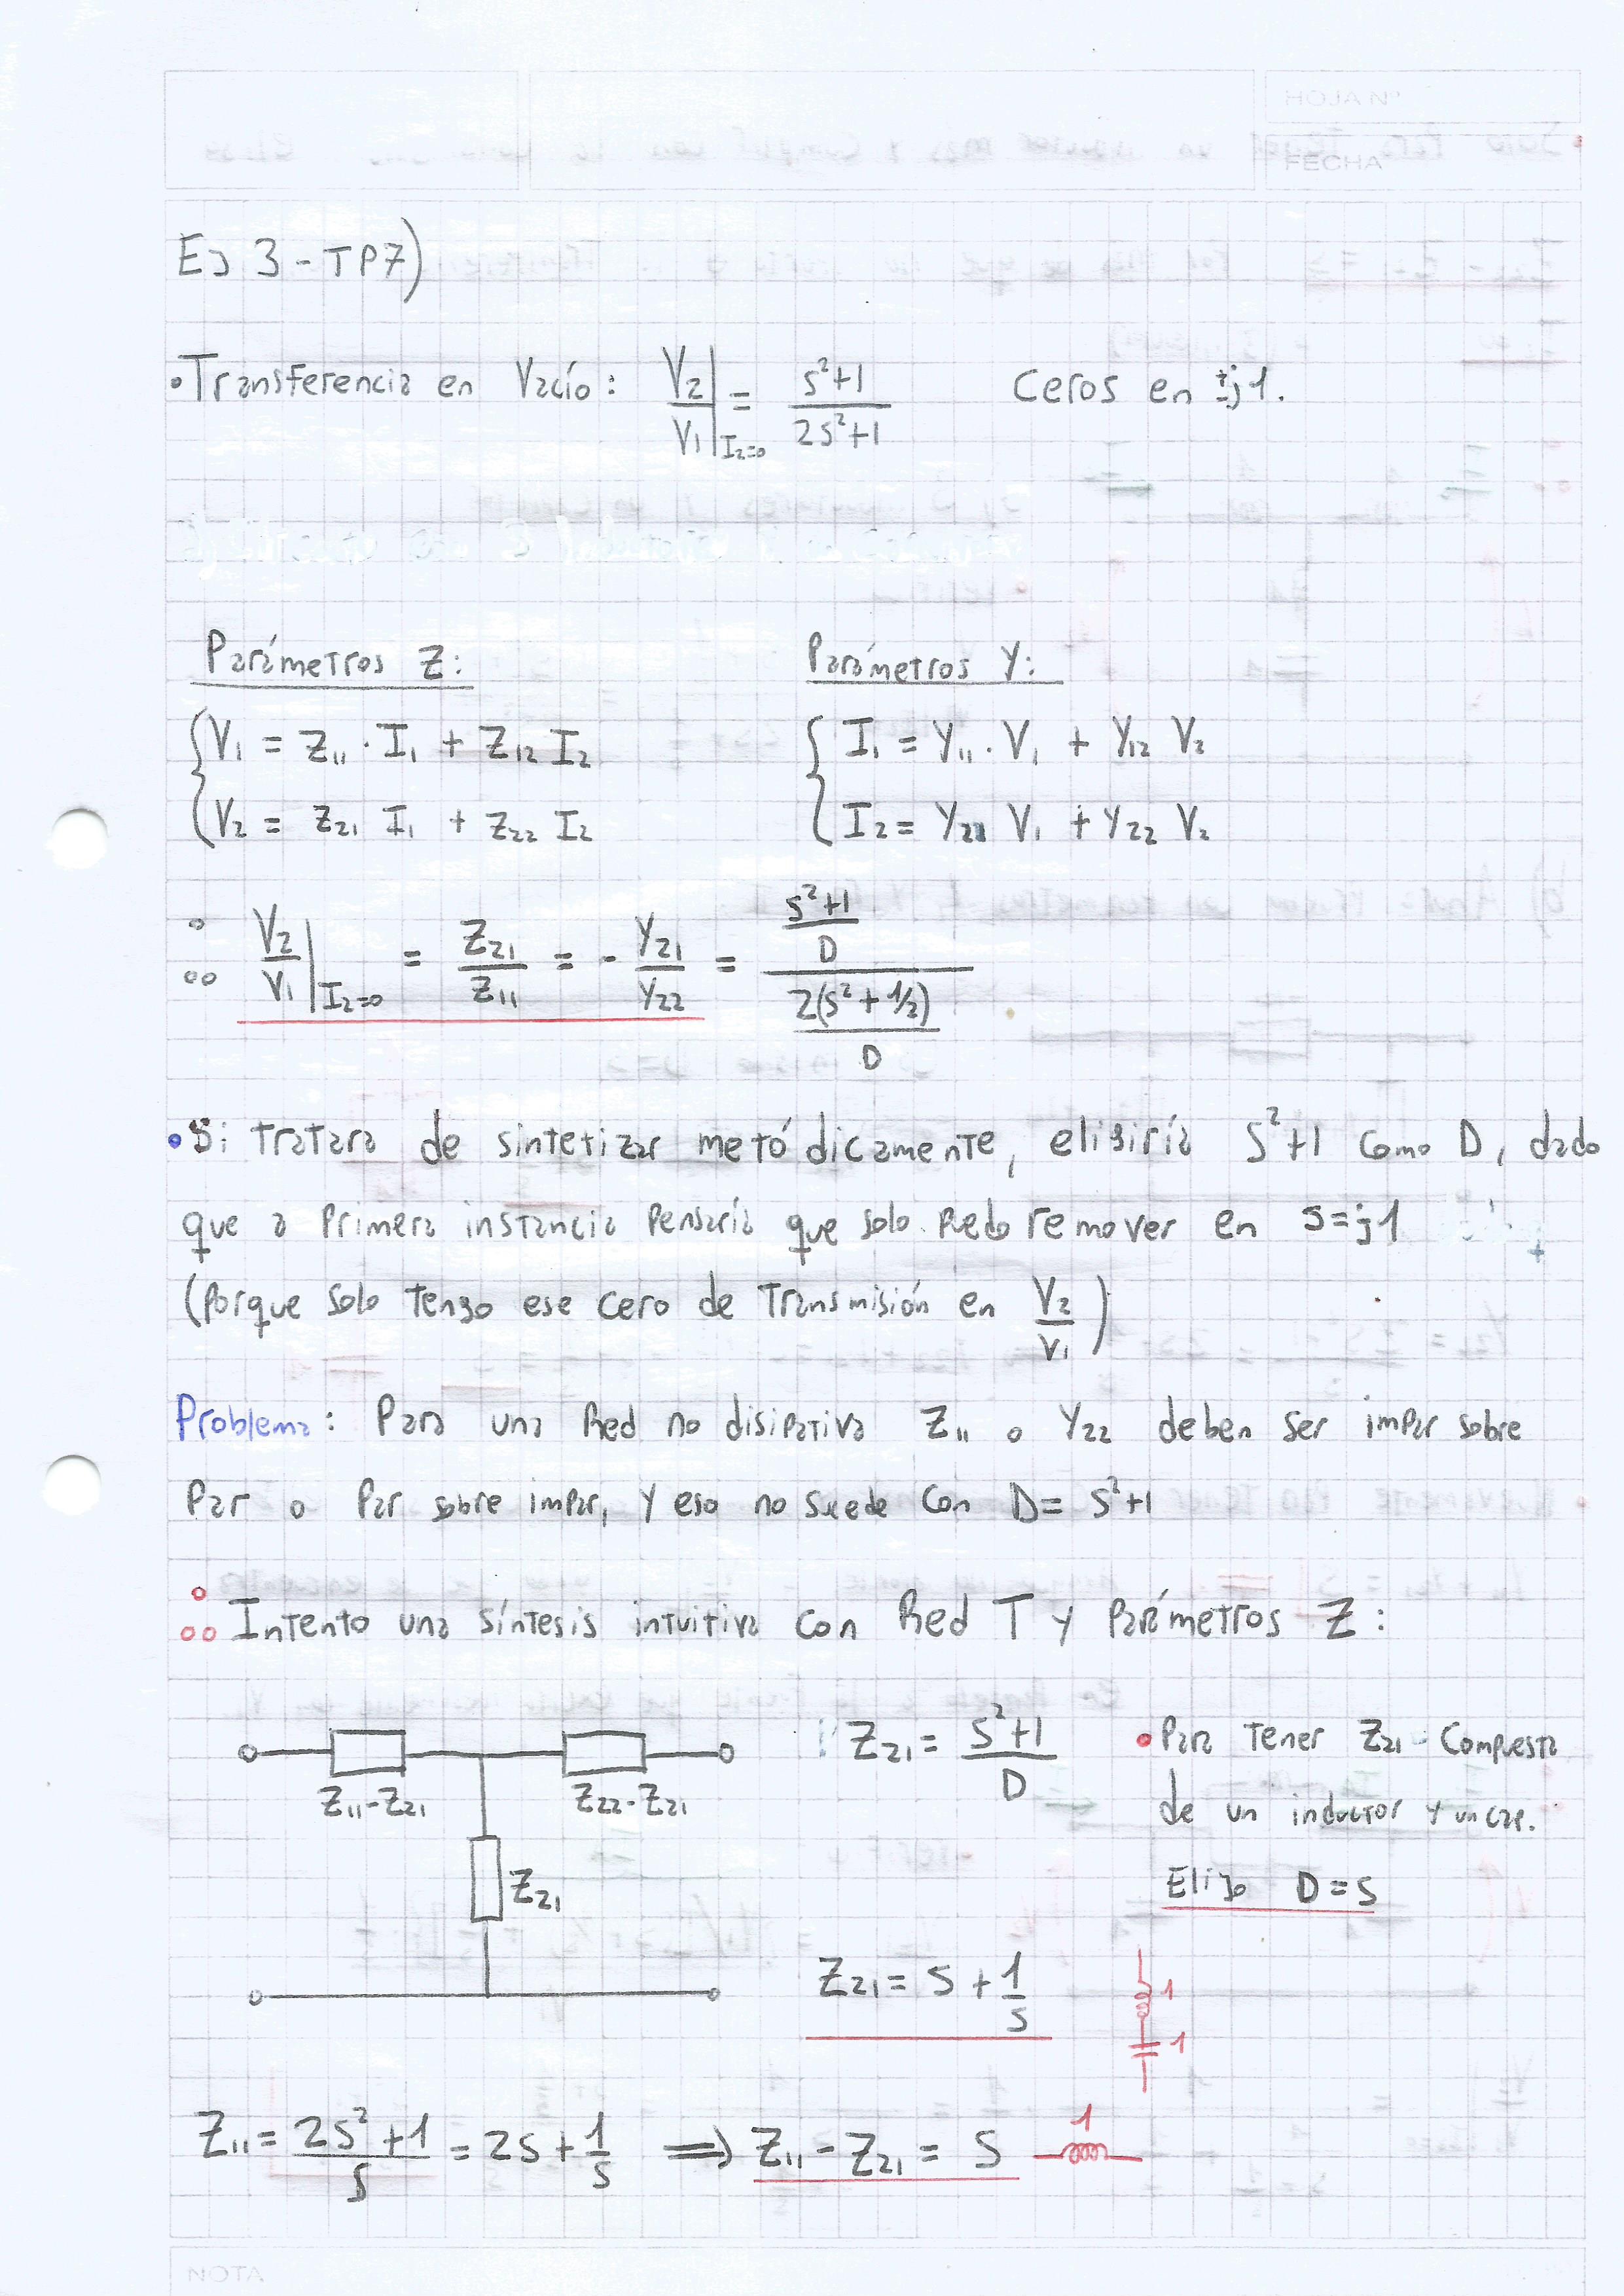 HOJA Nº
FECHA
Ej 3 - TP7)
• Transferencia en Vacío: V2/V1|I2=0 = (s²+1)/(2s²+1) Ceros en ±j1.
Parámetros Z: Parámetros Y:
{ V1 = Z11 · I1 + Z12 I2 { I1 = Y11 . V1 + Y12 V2
V2 = Z21 I1 + Z22 I2 I2 = Y21 V1 + Y22 V2
∴ V2/V1|I2=0 = Z21/Z11 = - Y21/Y22 = ((s²+1)/D)/((2(s²+1/2))/D)
• Si tratara de sintetizar metódicamente, eligiría s²+1 como D, dado
que a primera instancia pensaría que solo puedo remover en s=j1
(porque solo tengo ese cero de transmisión en V2/V1)
Problema: Para una Red no disipativa Z11 o Y22 deben ser impar sobre
Par o Par sobre impar, y eso no sucede con D= s²+1
∴ Intento una síntesis intuitiva con Red T y parámetros Z:
Z11-Z21 Z22-Z21 Z21 = (s²+1)/D • Para tener Z21 compuesta
de un inductor y un cap.
Z21 Elijo D=s
Z21 = s + 1/s 1
1
Z11 = (2s²+1)/s = 2s + 1/s ⟹ Z11 - Z21 = s 1
NOTA